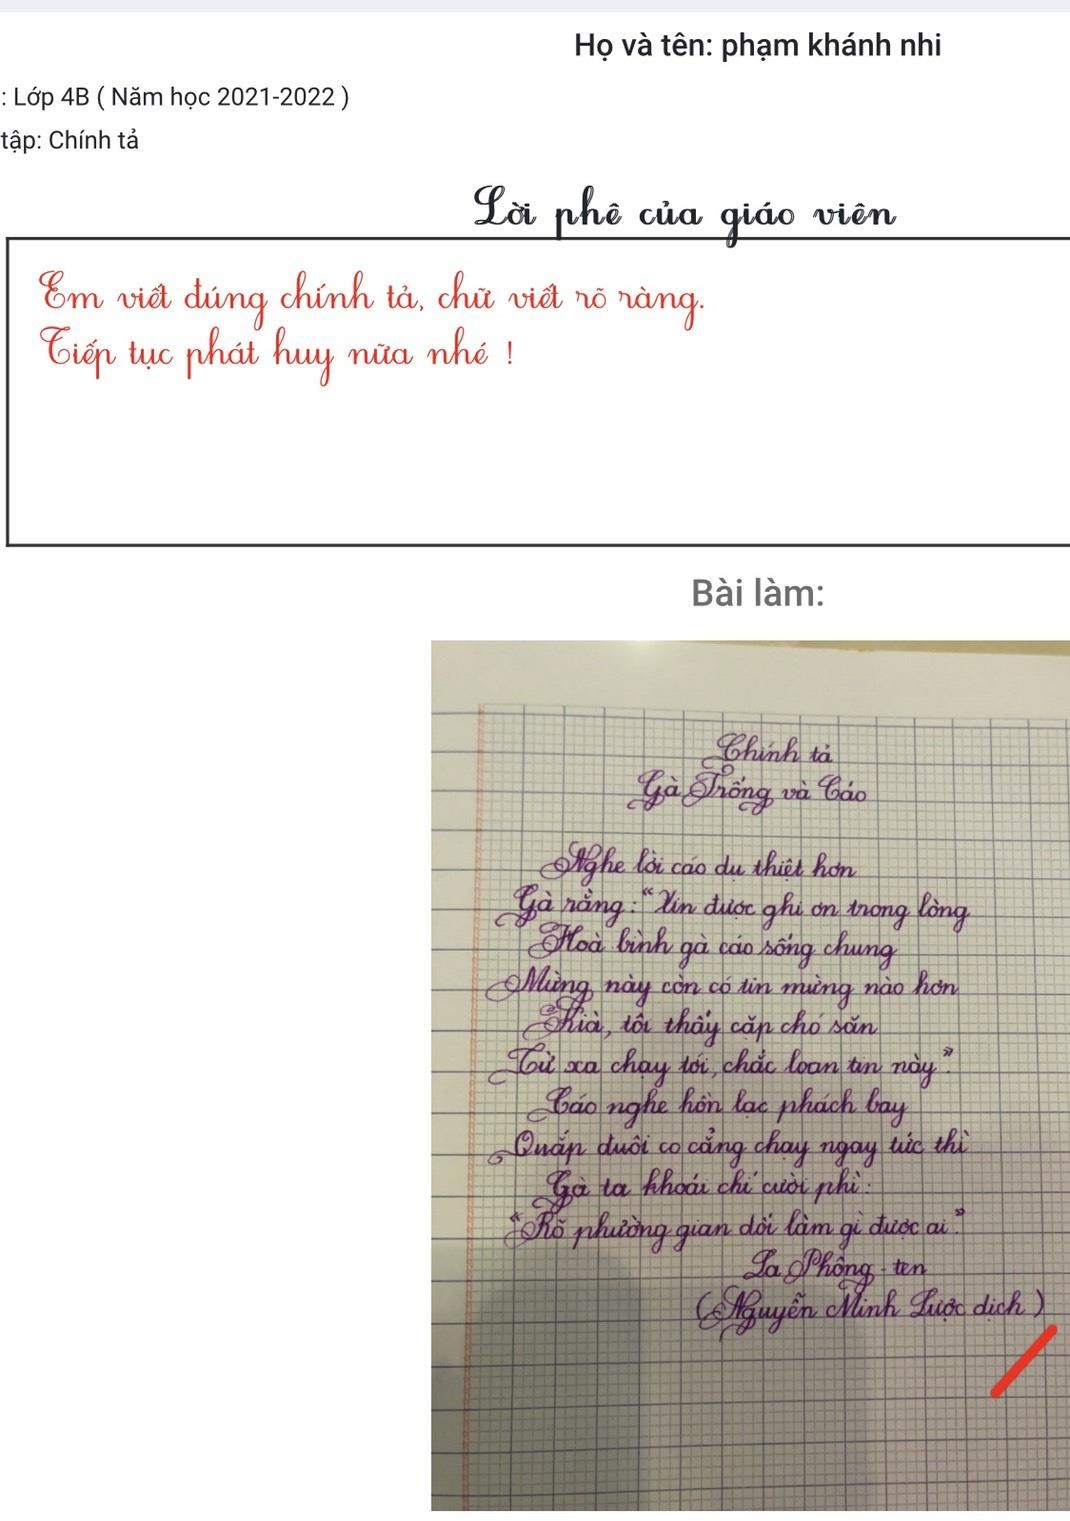 Họ và tên: phạm khánh nhi
: Lớp 4B ( Năm học 2021-2022 )
tập: Chính tả
Lời phê của giáo viên
Em viết đúng chính tả, chữ viết rõ ràng.
Tiếp tục phát huy nữa nhé !
Bài làm:
Chính tả
Gà Trống và Cáo
Nghe lời cáo dụ thiệt hơn
Gà rằng: "Xin được ghi ơn trong lòng
Hoà bình gà cáo sống chung
Mừng này còn có tin mừng nào hơn
Kìa, tôi thấy cặp chó săn
Từ xa chạy tới, chắc loan tin này".
Cáo nghe hồn lạc phách bay
Quắp đuôi co cẳng chạy ngay tức thì
Gà ta khoái chí cười phì:
"Rõ phường gian dối làm gì được ai".
La Phông-ten
(Nguyễn Minh Lược dịch)